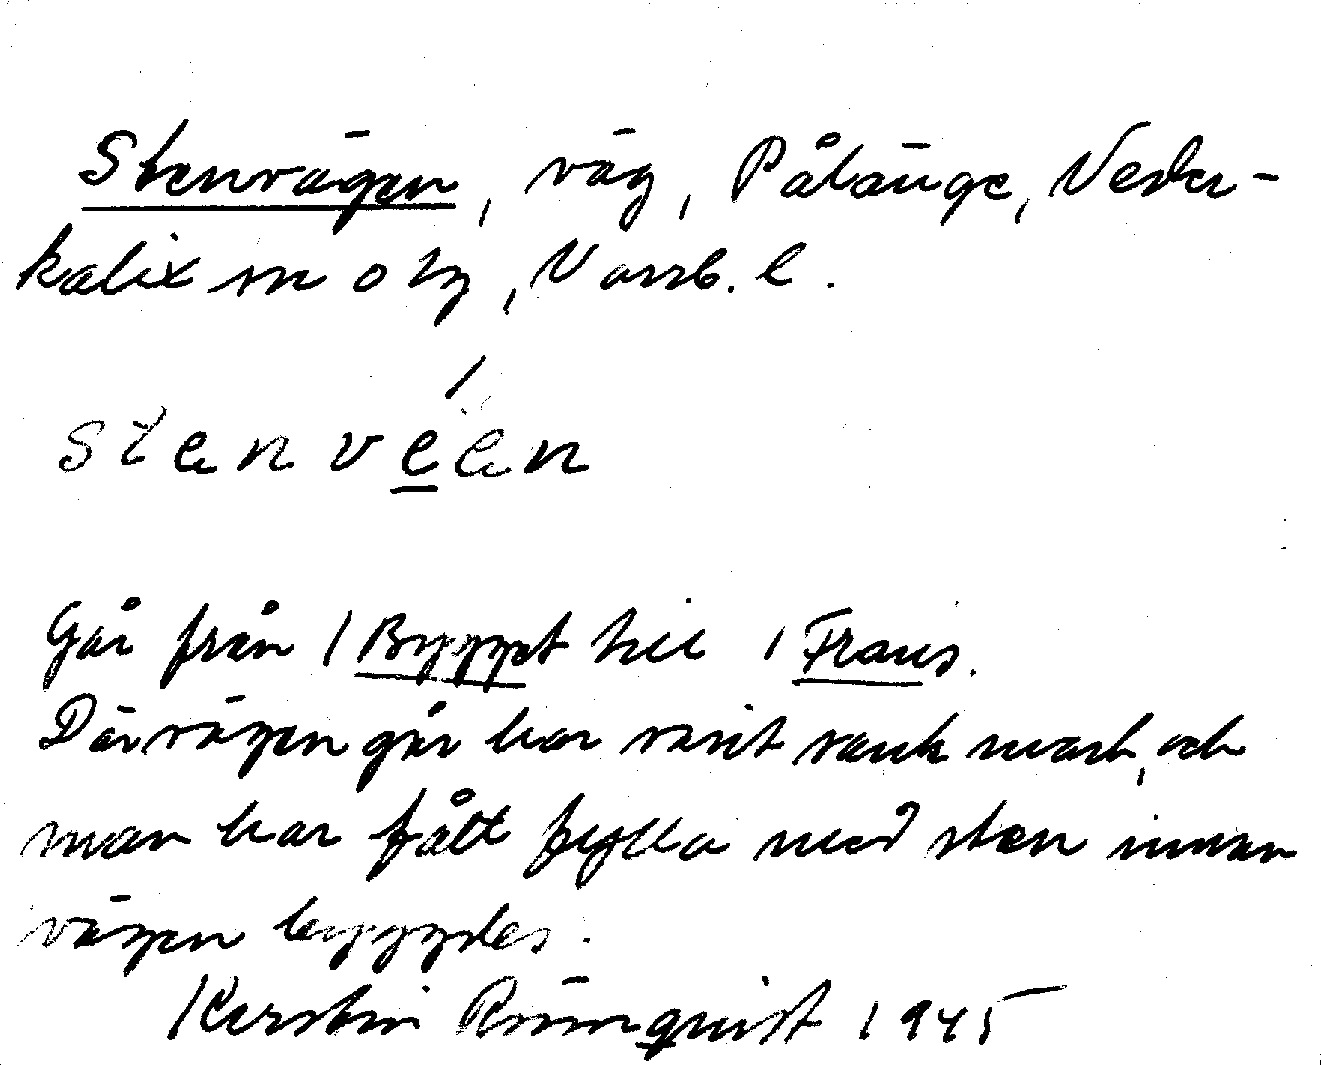 Stenvägen, väg, Pålänge, Neder-
kalix sn o tg, Norrb. l.
stenvéen
Går från / Bygget till / Frans.
Där vägen går har varit sank mark, och
man har fått fylla med sten innan
vägen byggdes.
Kerstin Rönnquist 1945